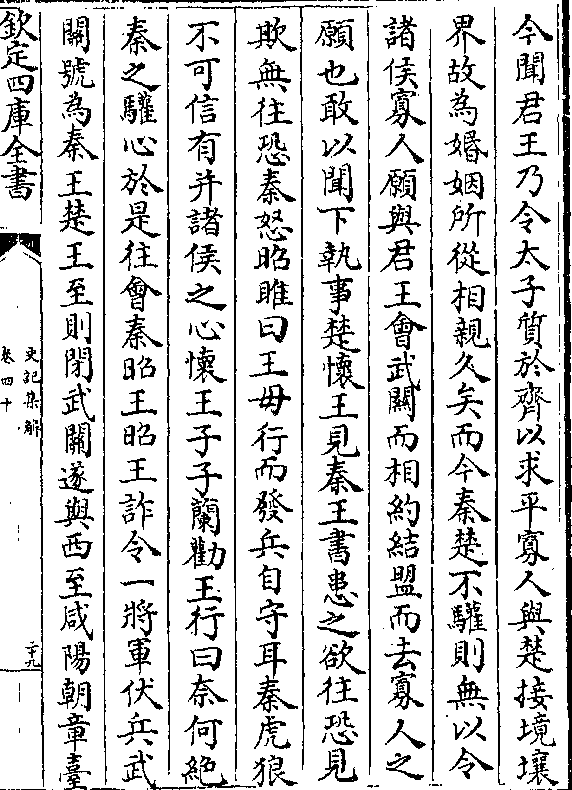 今聞君王乃令太子質於齊以求平寡人與楚接境壤
界故為婚姻所從相親久矣而今秦楚不驩則無以令
諸侯寡人願與君王會武關而相約結盟而去寡人之
願也敢以聞下執事楚懷王見秦王書患之欲往恐見
欺無往恐秦怒昭睢曰王毋行而發兵自守耳秦虎狼
不可信有并諸侯之心懷王子子蘭勸王行曰奈何絕
秦之驩心於是往會秦昭王昭王詐令一將軍伏兵武
關號為秦王楚王至則閉武關遂與西至咸陽朝章臺
欽定四庫全書
史記集解
卷四十
二十九